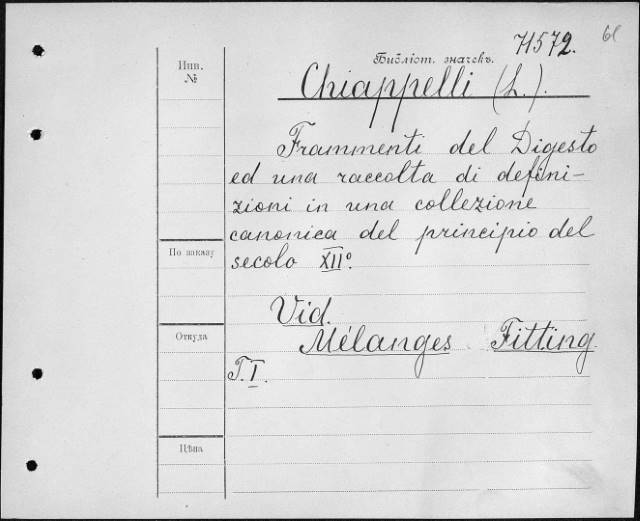 71572.
Инв.
№
Библіот. значекъ.
Chiappelli (L.).
Frammenti del Digesto
ed una raccolta di defini-
zioni in una collezione
canonica del principio del
secolo XIIº.
По заказу
Vid.
Откуда
Mélanges Fitting
T.I.
Цѣна